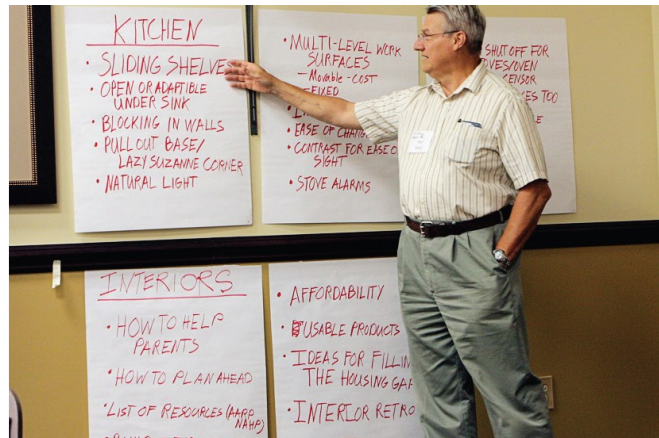 KITCHEN
• SLIDING SHELVE
• OPEN OR ADAPTIBLE
UNDER SINK
• BLOCKING IN WALLS
• PULL OUT BASE/
LAZY SUZANNE CORNER
• NATURAL LIGHT
• MULTI-LEVEL WORK
SURFACES
— Movable - COST
FIXED
• EASE OF CHANG
• CONTRAST FOR EASE O
SIGHT
• STOVE ALARMS
SHUT OFF FOR
OVEN
TOO
INTERIORS
• HOW TO HELP
PARENTS
• HOW TO PLAN AHEAD
• LIST OF RESOURCES (AARP
NAHB)
• AFFORDABILITY
• USABLE PRODUCTS
• IDEAS FOR FILLIN
THE HOUSING GAP
• INTERIOR RETRO